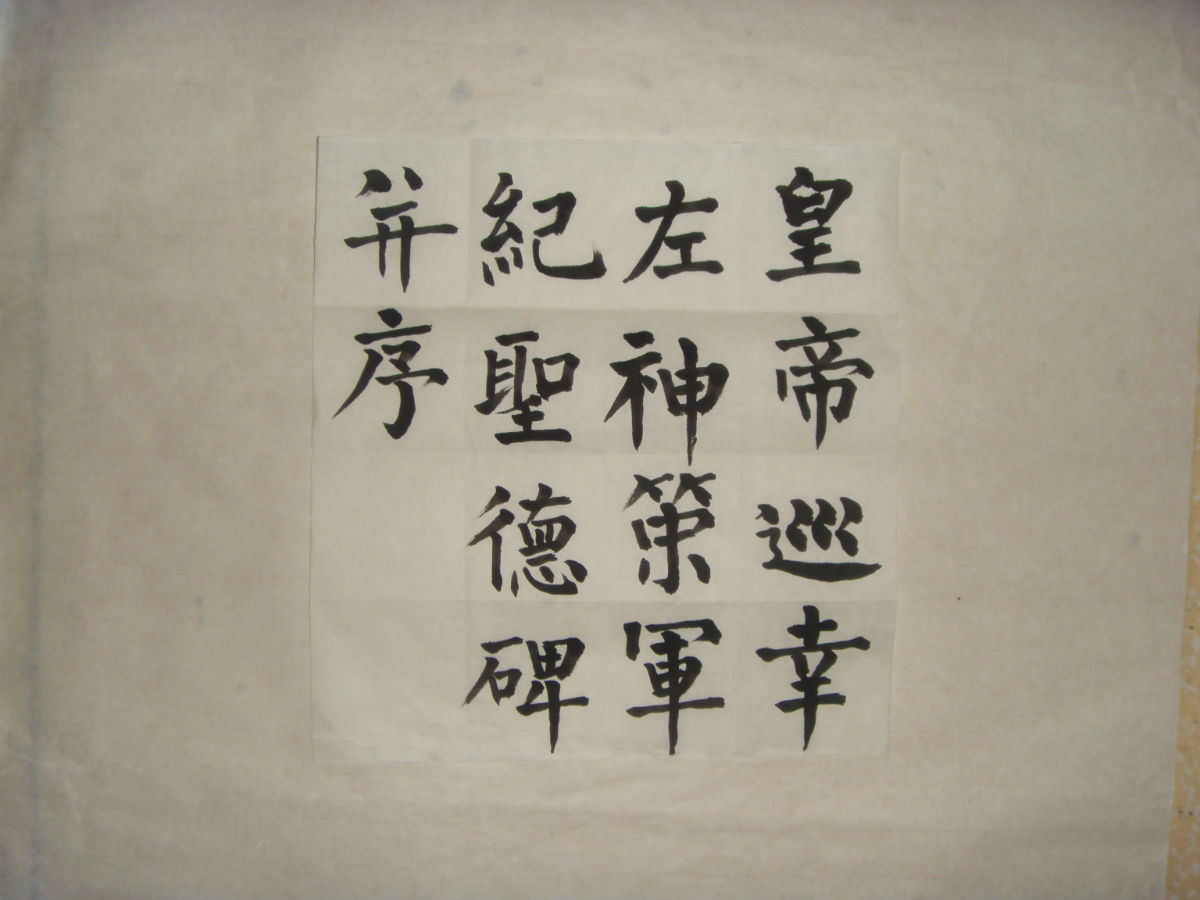 皇帝巡幸
左神策軍
紀聖德碑
并序